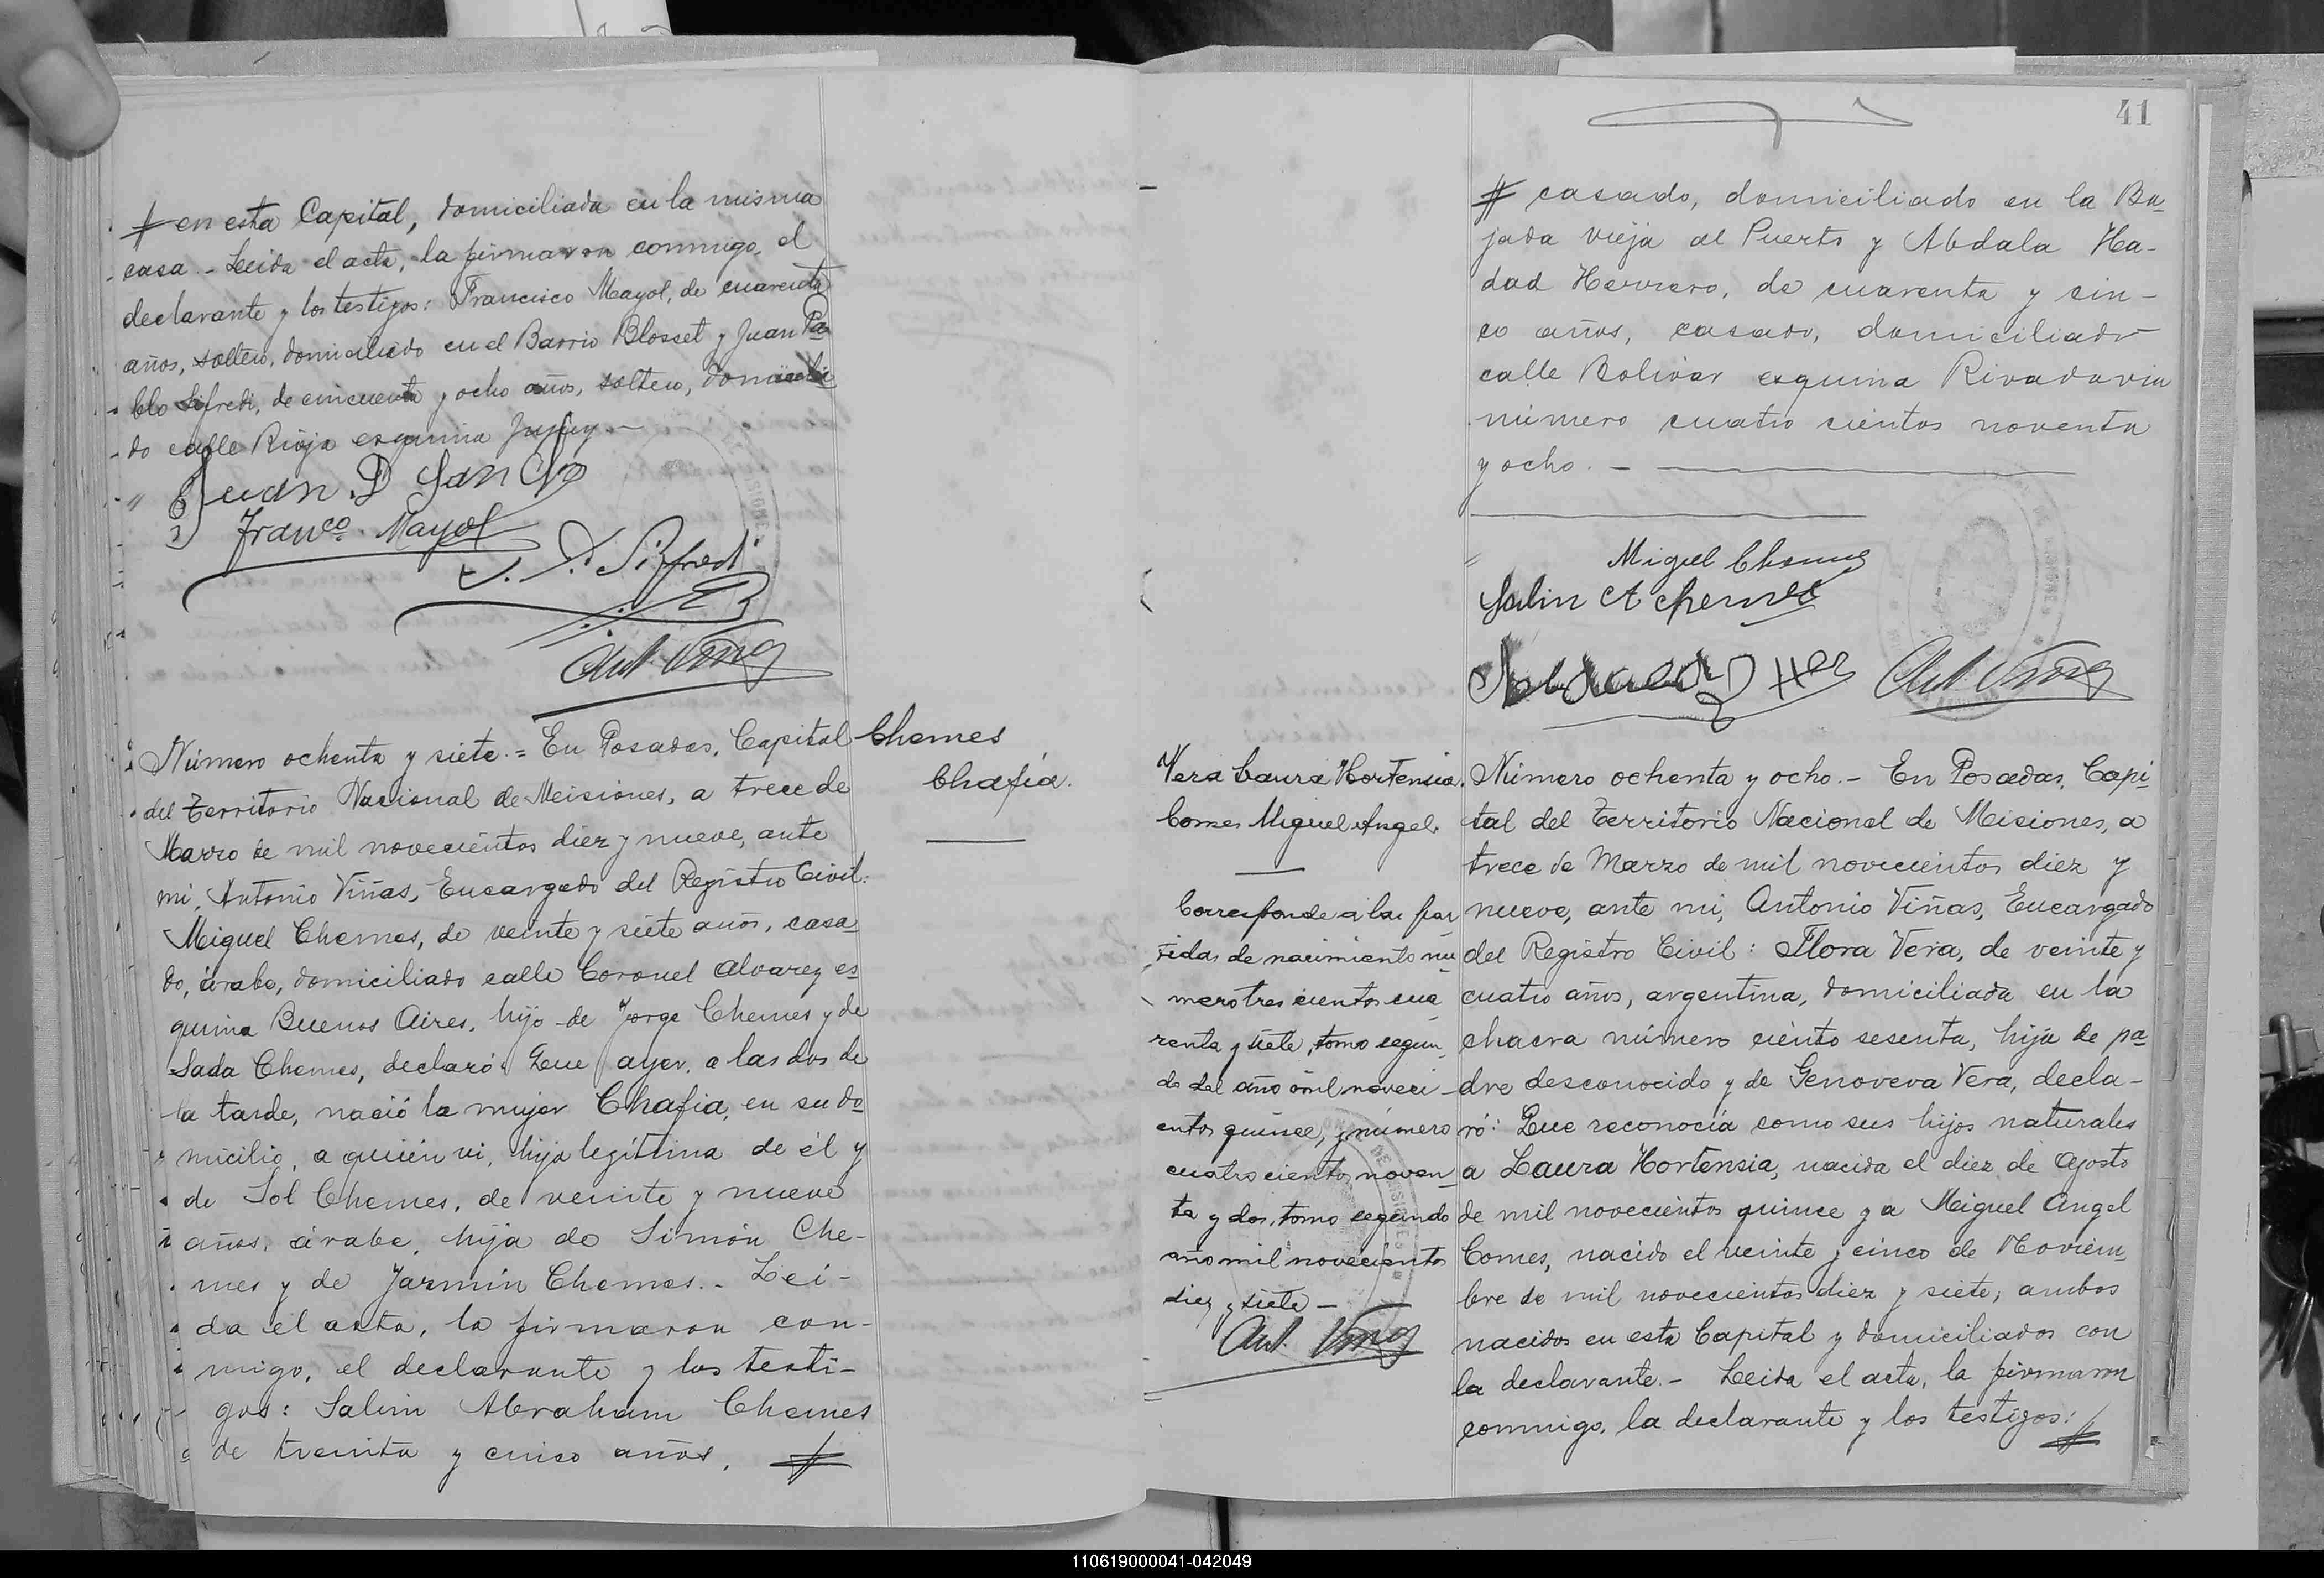 # en esta Capital, domiciliada en la misma
casa. - Leida el acta, la firmaron conmigo, el
declarante y los testigos: Francisco Mayol, de cuarenta
años, soltero, domiciliado en el Barrio Blosset y Juan Pa
blo Sifredi, de cincuenta y ocho años, soltero, domicilia
do calle Rioja esquina Jujuy. -
Juan. D Sancho
Franco. Mayol
J. P. Sifredi
Ant. Viñas
Número ochenta y siete. = En Posadas, Capital
del Territorio Nacional de Meisiones, a trece de
Marzo de mil novecientos diez y nueve, ante
mi, Antonio Viñas, Encargado del Registro Civil:
Miguel Chemes, de veinte y siete años, casa
do, árabe, domiciliado calle Coronel Alvarez es
quina Buenos Aires, hijo de Jorge Chemes y de
Sada Chemes, declaró: Que ayer, a las dos de
la tarde, nació la mujer Chafia, en su do
micilio, a quién vi, hija legítima de él y
de Sol Chemes, de veinte y nueve
años, árabe, hija de Simón Che-
mes y de Jazmín Chemes. - Lei-
da el acta, la firmaron con-
migo, el declarante y los testi-
gos: Salim Abraham Chemes
de treinta y cinco años, #
Chemes
Chafia.
41
# casado, domiciliado en la Ba-
jada vieja al Puerto y Abdala Ha-
dad Herrero, de cuarenta y cin-
co años, casado, domiciliado
calle Bolivar esquina Rivadavia
número cuatro cientos noventa
y ocho. -
Miguel Chemes
Salin A chemes
Ant Viñas
Vera Laura Hortensia.
Comes Miguel Angel.
Corresponde a las par
tidas de nacimiento nu
mero tres cientos cua
renta y siete, tomo segun
do del año mil noveci-
entos quince, y número
cuatro cientos noven
ta y dos, tomo segundo
año mil novecientos
diez y siete -
Ant. Viñas
Número ochenta y ocho. - En Posadas, Capi
tal del Territorio Nacional de Misiones, a
trece de Marzo de mil novecientos diez y
nueve, ante mi, Antonio Viñas, Encargado
del Registro Civil: Flora Vera, de veinte y
cuatro años, argentina, domiciliada en la
chacra número ciento sesenta, hija de pa
dre desconocido y de Genoveva Vera, decla-
ró: Que reconocía como sus hijos naturales
a Laura Hortensia, nacida el diez de Agosto
de mil novecientos quince y a Miguel Angel
Comes, nacido el veinte y cinco de Noviem
bre de mil novecientos diez y siete, ambos
nacidos en esta Capital y domiciliados con
la declarante. - Leida el acta, la firmaron
conmigo, la declarante y los testigos: #
110619000041-042049